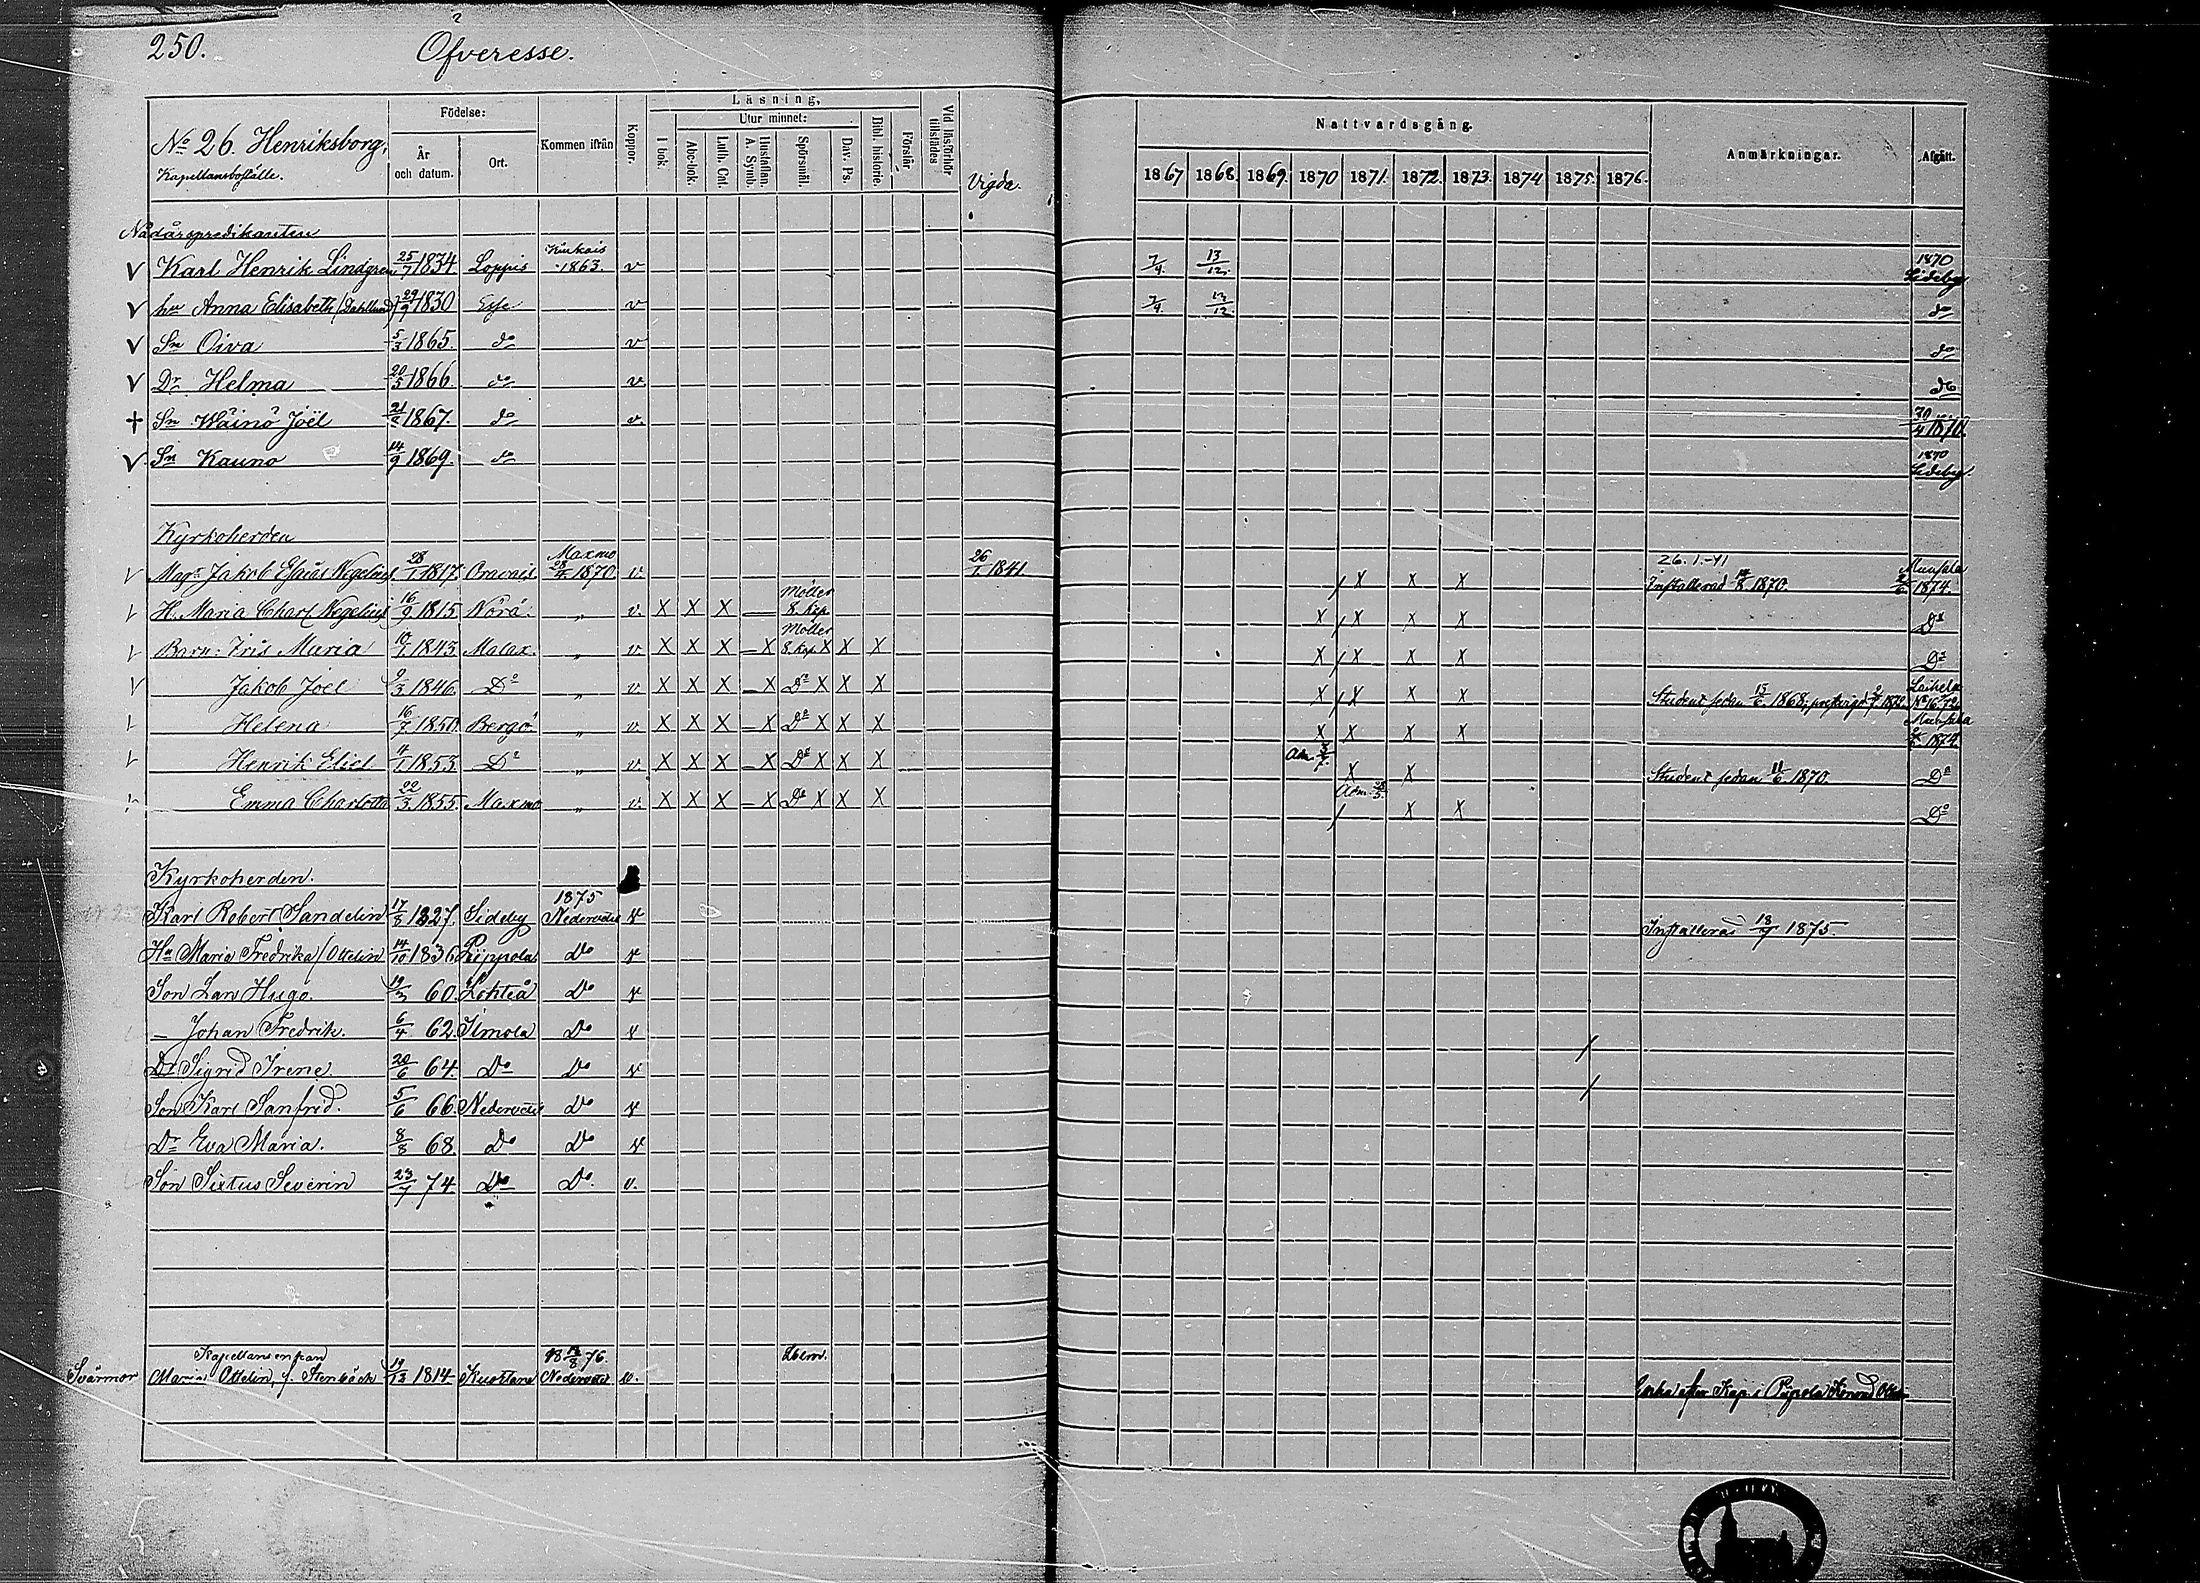 250.
Ofveresse.
No 26. Henriksborg,
Kapellansboställe.
Födelse:
År och datum.
Ort.
Kommen ifrån
Koppor.
Läsning,
Utur minnet:
I bok.
Abc-bok.
Luth. Cat.
Hustaflan. A. Symb.
Spörsmål.
Dav. Ps.
Bibl. historie.
Förstår
Vid läsförhör tillstädes
Vigda.
Nattvardsgång.
1867 1868. 1869. 1870 1871. 1872. 1873. 1874 1875. 1876.
Anmärkningar.
Afgått.
Nådårspredikanten
V Karl Henrik Lindgren 25/7 1834 Loppis 1863. v 7/4. 13/12. 1870 Sideby
V Anna Elisabeth (Dahllund) 29/9 1830 Esse v 7/4. 13/12. do
V Sn Oiva 5/3 1865. do v do
V Dr Helma 20/5 1866. do v do
+ Sn Wäinö Joël 21/2 1867. do v. 30/4 1870.
V Sn Kauno 14/9 1869. do 1870 Sideby
Kyrkoherden
Magr Jakob Esaias Wegelius 28/1 1817. Oravais Maxmo 28/4 1870 v. 26/1 1841. / X X X 26.1.-41 Installerad 14/8 1870. Munsala 1874.
H. Maria Charl Wegelius 16/9 1815 Nörå. „ v. X X X — Möller 8. Kap X / X X X Do
Barn: Iris Maria 10/1 1843 Malax. „ v X X X — X Möller 8. Kap X X X X / X X X Do
Jakob Joel 9/3 1846. Do „ v. X X X — X Do X X X X / X X X Student sedan 15/6 1868; prestvigd 1872 Laihela No 16. 72
Helena 16/7 1850. Bergö. „ v. X X X — X Do X X X X X X X Munsala 1874
Henrik Eliel 4/1 1853 Do „ v. X X X — X Do X X X Adm. 3/7. X X Student sedan 11/6 1870. Do
Emma Charlotta 22/3 1855. Maxmo „ v. X X X — X Do X X X Adm. / X X Do
Kyrkoherden.
Karl Robert Sandelin 17/8 1827. Sideby 1875 Nedervetil v Installerad 18/7 1875.
Hu Maria Fredrika (Ottelin 14/10 1836 Pippola Do v
Son Lars Hugo. 19/3 60. Lohteå Do v
— Johan Fredrik. 6/4 62. Ilmola Do v
Dr Sigrid Irene. 20/6 64. Do Do v /
Son Karl Sanfrid. 5/6 66. Nedervetil Do v /
Dr Eva Maria. 8/8 68. Do Do v
Son Sixtus Severin 23/7 74. Do Do. v.
Kapellansenkan
Svärmor Maria Ottelin, f. Stenbäck 19/12 1814 Kuortane Nedervetil v. Enka efter Kap. i Pipola